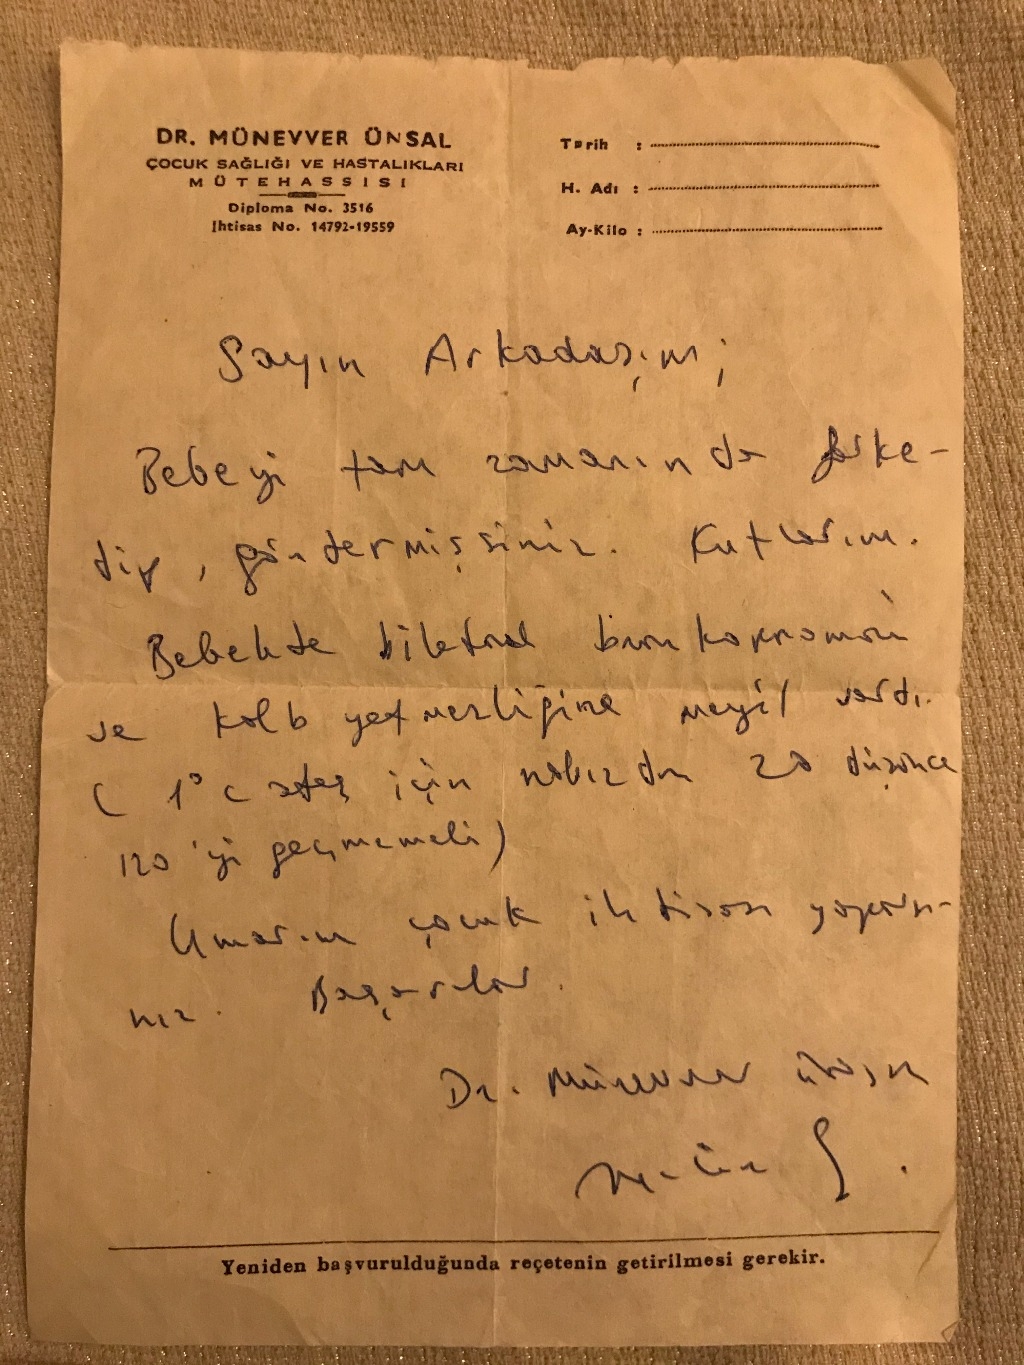 DR. MÜNEVVER ÜNSAL
ÇOCUK SAĞLIĞI VE HASTALIKLARI
MÜTEHASSISI
Diploma No. 3516
İhtisas No. 14792-19559
Tarih :
H. Adı :
Ay-Kilo :
Sayın Arkadaşım;
Bebeyi tam zamanında farke-
dip, göndermişsiniz. Kutlarım.
Bebekte bilateral bronkopnomoni
ve kalb yetmezliğine meyil vardı.
( 1°c ateş için nabızdan 20 düşünce
120'yi geçmemeli)
Umarım çocuk ihtisası yaparsı-
nız. Başarılar.
Dr. Münevver
Yeniden başvurulduğunda reçetenin getirilmesi gerekir.